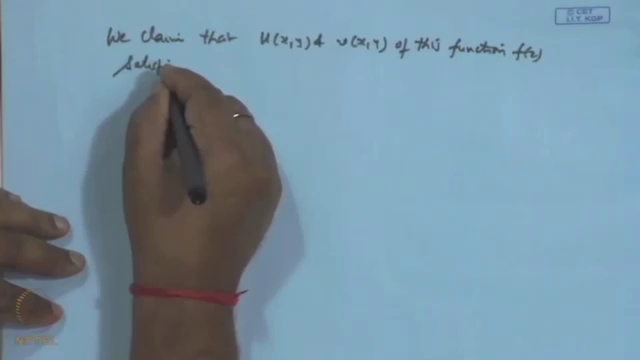 © CET
I.I.T. KGP
We claim that u(x,y) & v(x,y) of this function f(z)
Satisfi
NPTEL